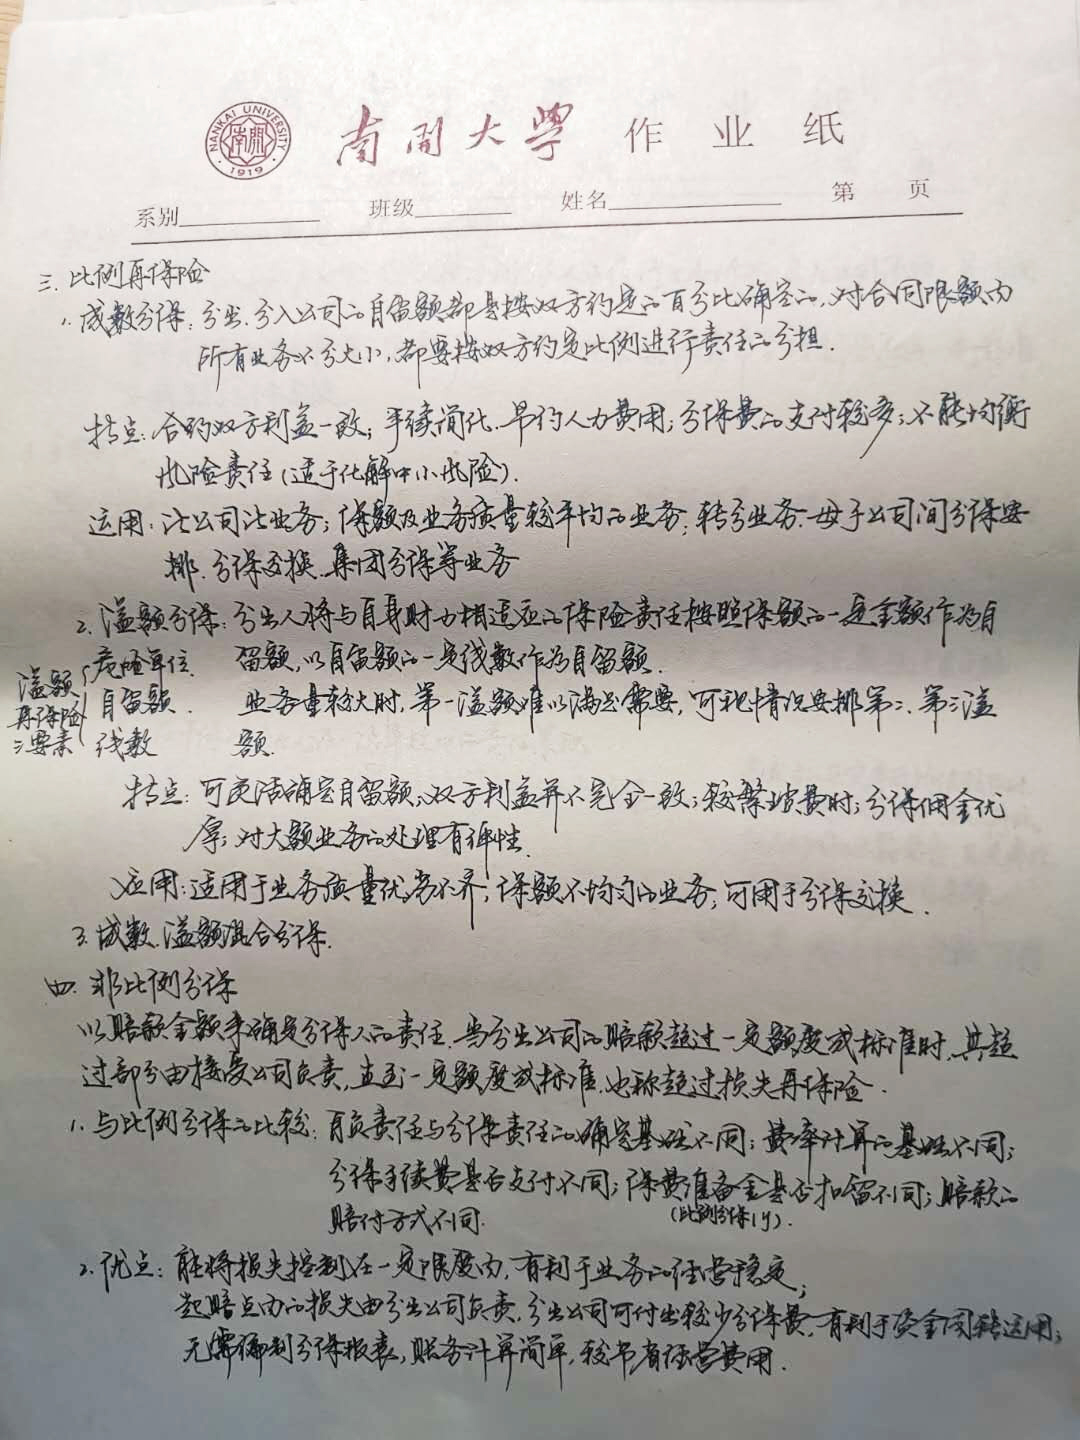 NANKAI UNIVERSITY
南开
1919
南开大学 作业纸
系别 班级 姓名 第 页
三. 比例再保险
1. 成数分保：分出、分入公司的自留额都是按双方约定的百分比确定的，对合同限额内
所有业务不分大小，都要按双方约定比例进行责任的分担．
特点：合约双方利益一致；手续简化、节约人力费用；分保费的支付较多；不能均衡
风险责任（适于化解中小风险）．
运用：新公司新业务；保额及业务质量较平均的业务；转分业务、母子公司间分保安
排、分保交换、集团分保等业务
2. 溢额分保：分出人将与自身财力相适应的保险责任按照保额的一定金额作为自
留额，以自留额的一定线数作为自留额．
业务量较大时，第一溢额难以满足需要，可视情况安排第二、第三溢
额．
溢额
再保险
三要素
危险单位
自留额
线数
特点：可灵活确定自留额；双方利益并不完全一致；较繁琐费时；分保佣金优
厚；对大额业务的处理有弹性．
应用：适用于业务质量优劣不齐，保额不均匀的业务；可用于分保交换．
3. 成数、溢额混合分保．
四. 非比例分保
以赔款金额来确定分保人的责任．当分出公司的赔款超过一定额度或标准时，其超
过部分由接受公司负责，直至一定额度或标准．也称超过损失再保险．
1. 与比例分保的比较：自负责任与分保责任的确定基础不同；费率计算的基础不同；
分保手续费是否支付不同；保费准备金是否扣留不同；赔款的
(比例分保扣).
赔付方式不同．
2. 优点：能将损失控制在一定限度内，有利于业务的经营稳定；
起赔点内的损失由分出公司负责，分出公司可付出较少分保费，有利于资金周转运用；
无需编制分保报表，账务计算简单，较节省经营费用．